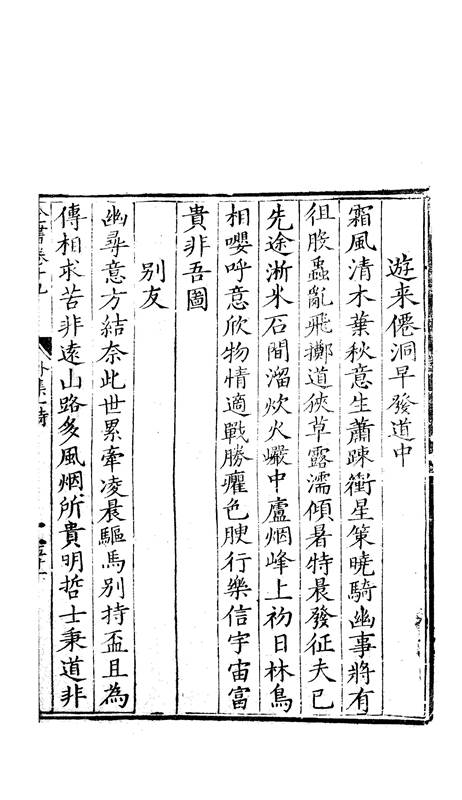 遊来僊洞早發道中
霜風清木葉秋意生蕭踈衝星策曉騎幽事將有
徂股蟲亂飛擲道狹草露濡傾暑特晨發征夫已
先途淅米石間溜炊火巗中廬烟峰上初日林鳥
相嚶呼意欣物情適戰勝癯色腴行樂信宇宙富
貴非吾圖
别友
幽尋意方結奈此世累牽凌晨驅馬别持盃且為
傳相求苦非遠山路多風烟所貴明哲士秉道非
全書卷十九 外集一 詩